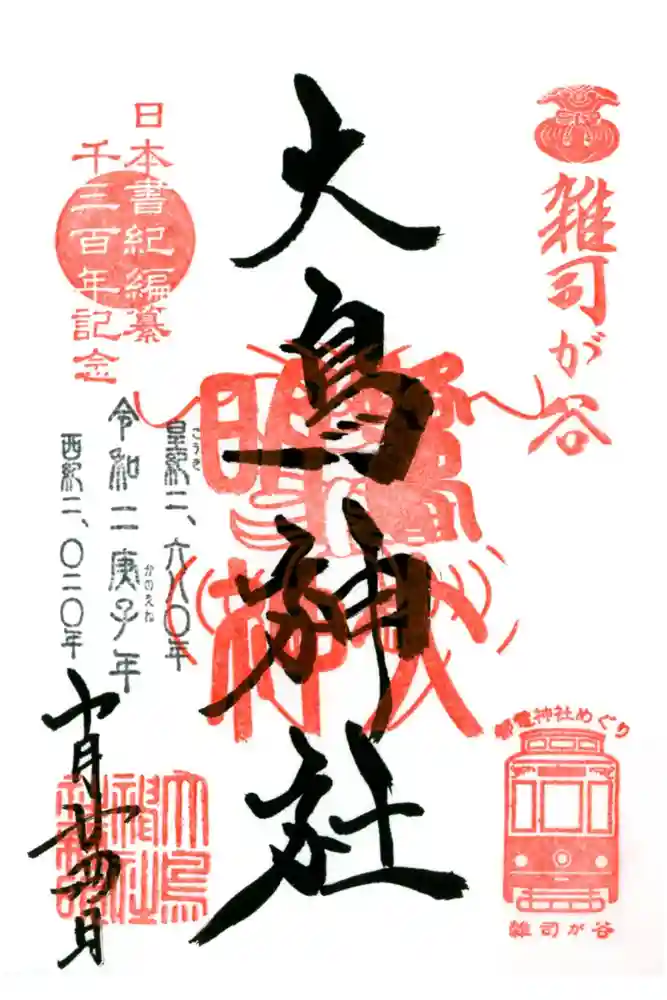 雑司が谷
大鳥神社
日本書紀編纂
千三百年記念
皇紀二、六八〇年
こうき
令和二庚子年
かのえね
西紀二、〇二〇年
月廿四日
大鳥
神社
都電神社めぐり
雑司が谷